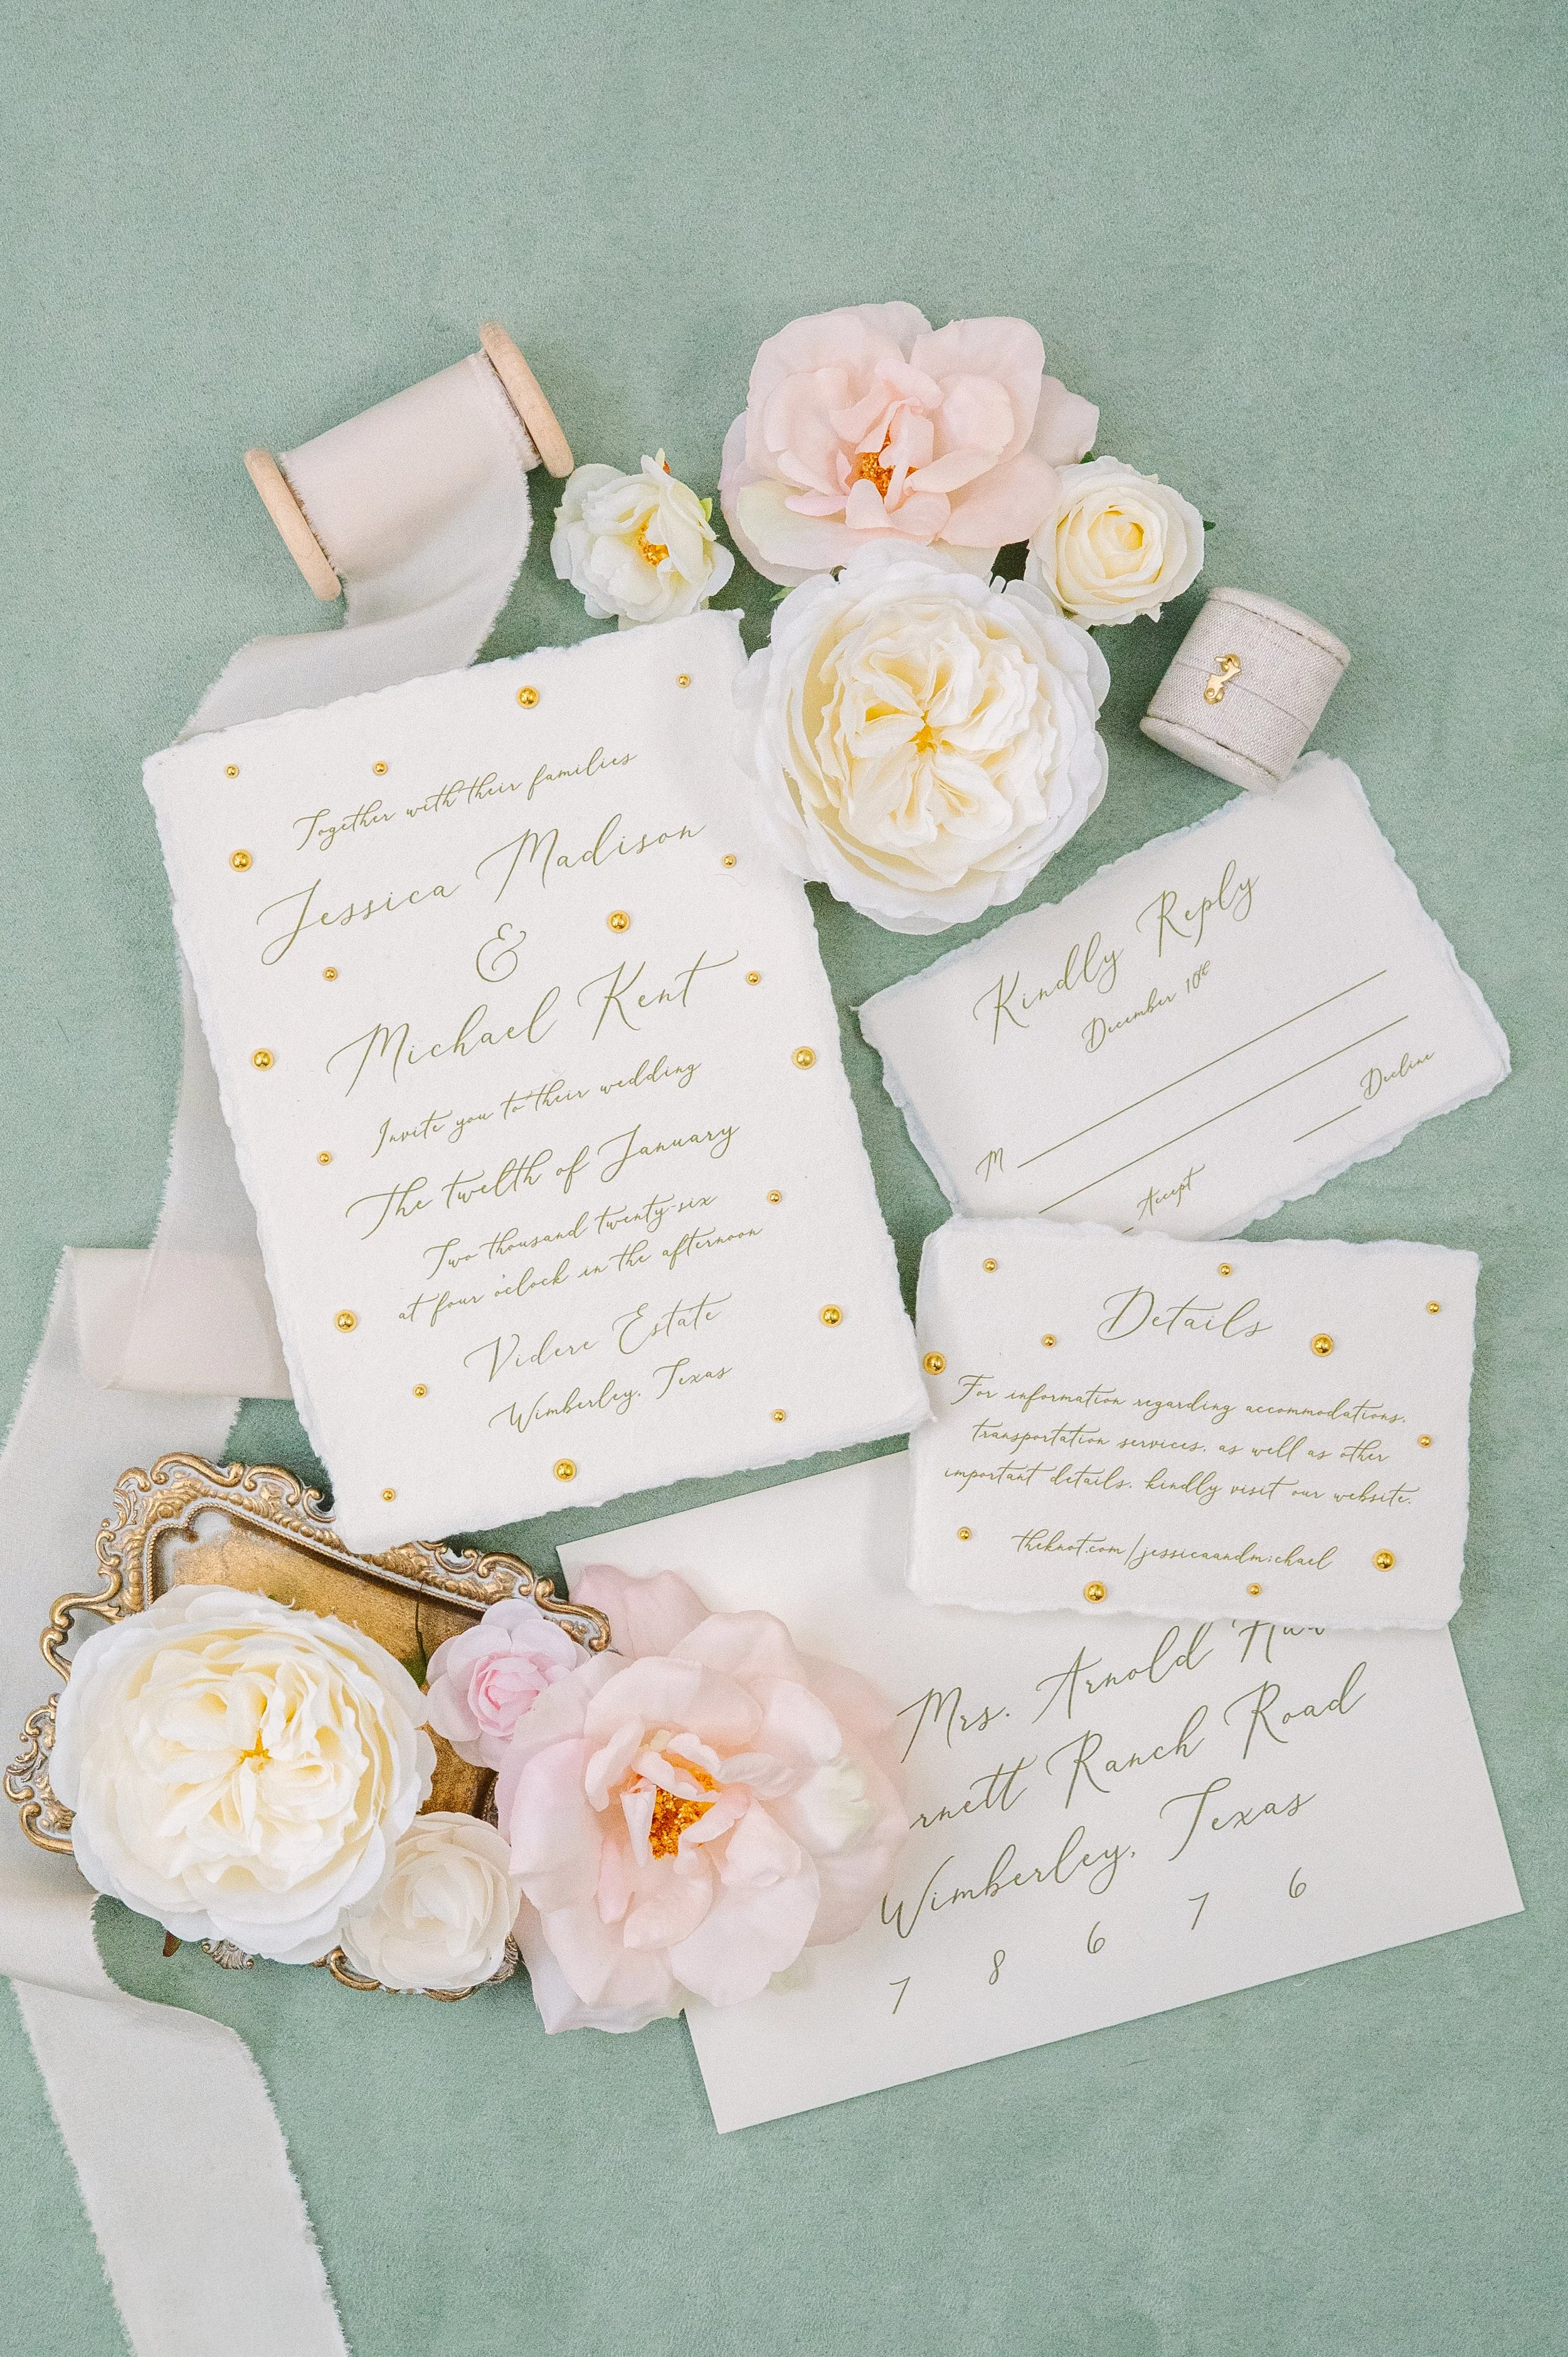 Together with their families
Jessica Madison
&
Michael Kent
Invite you to their wedding
The twelth of January
Two thousand twenty-six
at four o'clock in the afternoon
Videre Estate
Wimberley, Texas
Kindly Reply
December 10th
M
Accept
Decline
Details
For information regarding accommodations,
transportation services, as well as other
important details, kindly visit our website.
theknot.com/jessicaandmichael
Mrs. Arnold
Ranch Road
Wimberley, Texas
7 8 6 7 6